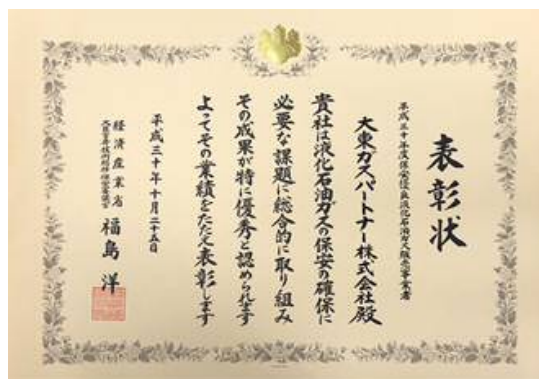 表彰状
平成三十年度保安優良液化石油ガス販売事業者
大東ガスパートナー株式会社殿
貴社は液化石油ガスの保安の確保に
必要な課題に総合的に取り組み
その成果が特に優秀と認められます
よってその業績をたたえ表彰します
平成三十年十月二十五日
経済産業省
大臣官房技術総括・保安審議官
福島 洋